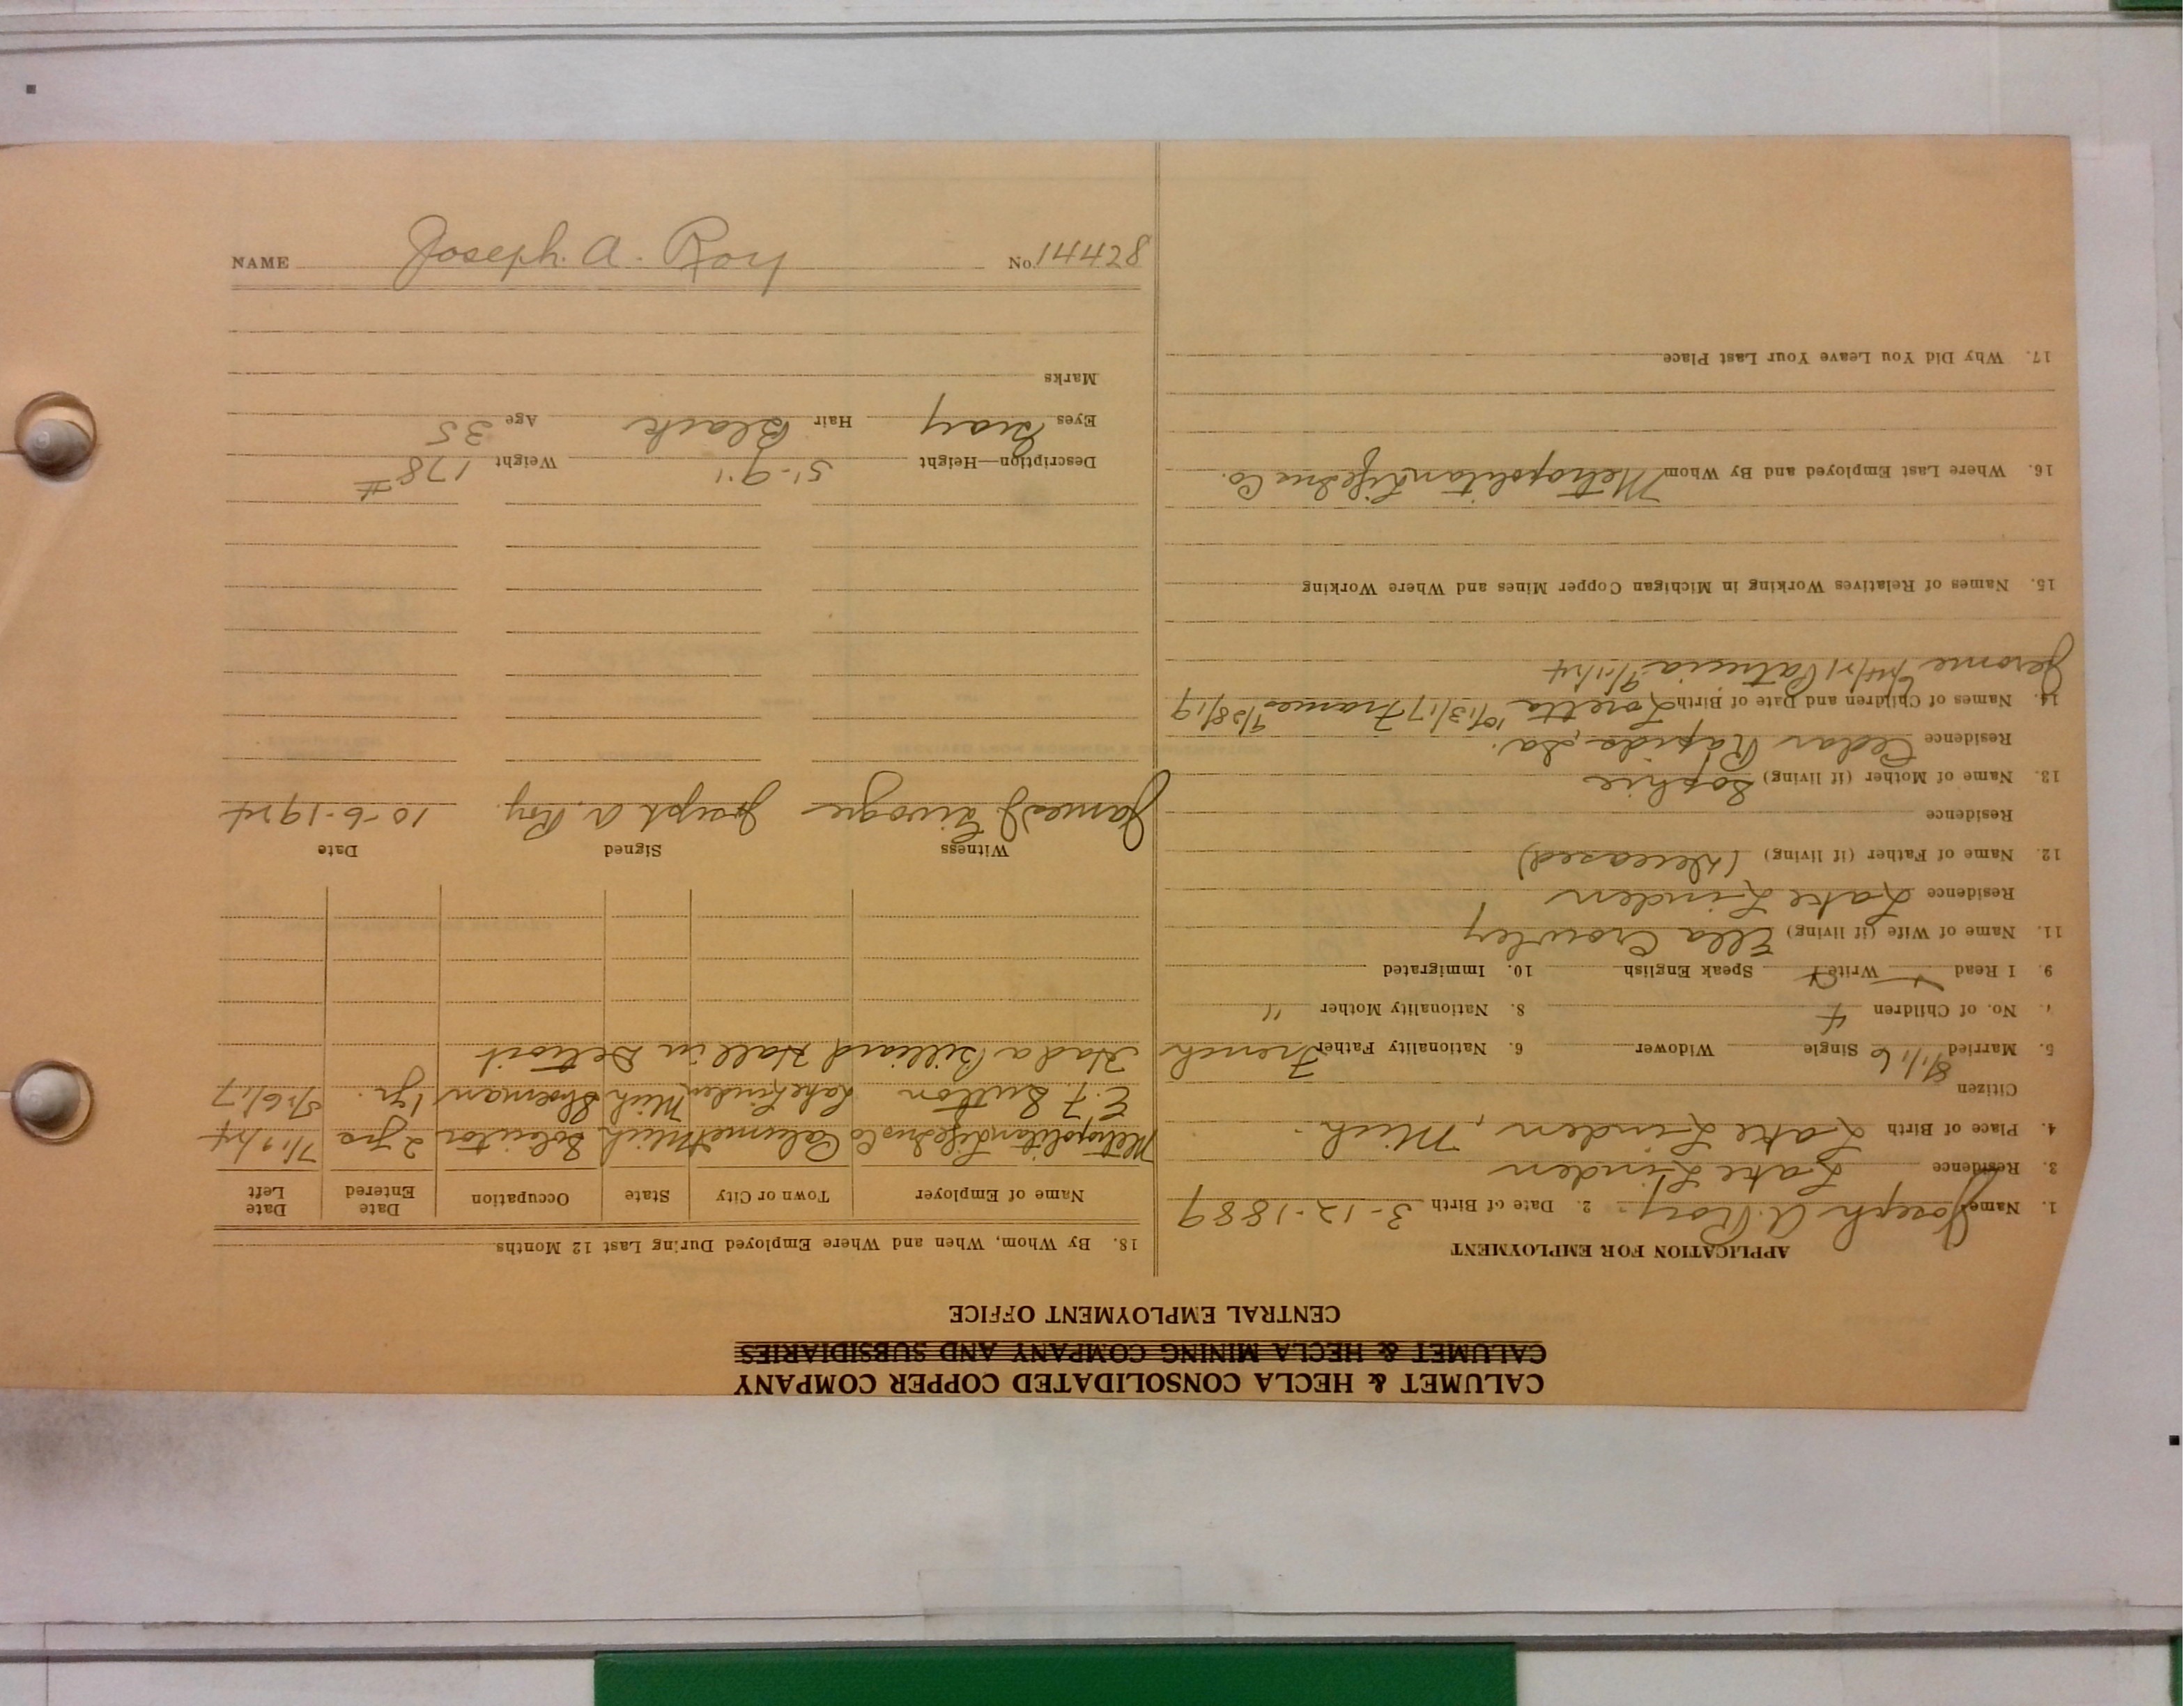 CALUMET & HECLA CONSOLIDATED COPPER COMPANY
CALUMET & HECLA MINING COMPANY AND SUBSIDIARIES
CENTRAL EMPLOYMENT OFFICE
APPLICATION FOR EMPLOYMENT
1. Name Joseph A. Roy 2. Date of Birth 3-12-1889
3. Residence Lake Linden
4. Place of Birth Lake Linden, Mich.
Citizen
5. Married 8/1/16 Single Widower 6. Nationality Father French
7. No. of Children 4 8. Nationality Mother "
9. I Read Write Speak English 10. Immigrated
11. Name of Wife (if living) Ella Crowley
Residence Lake Linden
12. Name of Father (if living) (Deceased)
Residence
13. Name of Mother (if living) Sophie
Residence Cedar Rapids, Ia.
14. Names of Children and Date of Birth Loretta 10/13/17 Frances 9/28/19
Jerome Patricia 9/11/24
15. Names of Relatives Working in Michigan Copper Mines and Where Working
16. Where Last Employed and By Whom Metropolitan Life Ins Co.
17. Why Did You Leave Your Last Place
18. By Whom, When and Where Employed During Last 12 Months
Name of Employer Town or City State Occupation Date Entered Date Left
Metropolitan Life Ins Co Calumet Mich Solicitor 2 yrs 7/19/24
E. F. Sutton Lake Linden Mich Shoeman 1 yr. 5/26/17
Had a Billiard Hall in Detroit
Witness Signed Date
James J. Joseph A. Roy 10-6-1924
Description—Height 5'-9" Weight 178 #
Eyes Gray Hair Black Age 35
Marks
NAME Joseph. A. Roy No. 14428